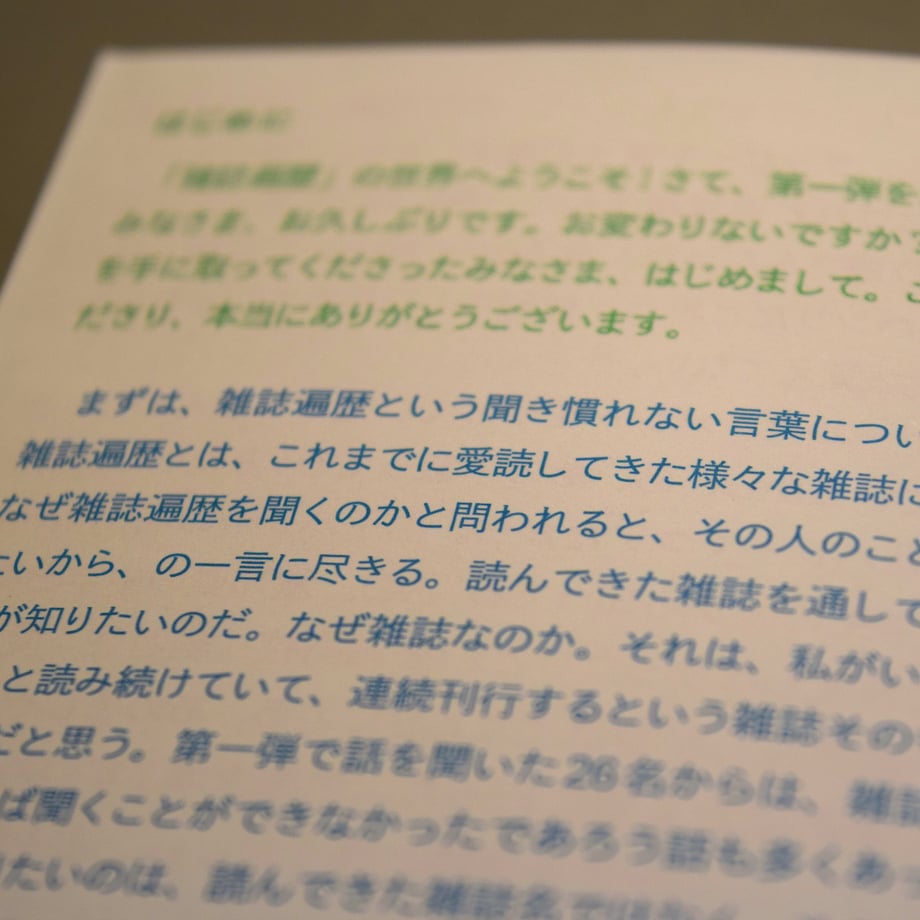 はじめに
「雑誌遍歴」の世界へようこそ！さて、第一弾を
みなさま、お久しぶりです。お変わりないですか？
を手に取ってくださったみなさま、はじめまして。こ
ださり、本当にありがとうございます。
まずは、雑誌遍歴という聞き慣れない言葉につい
雑誌遍歴とは、これまでに愛読してきた様々な雑誌に
なぜ雑誌遍歴を聞くのかと問われると、その人のこと
たいから、の一言に尽きる。読んできた雑誌を通して
が知りたいのだ。なぜ雑誌なのか。それは、私がい
と読み続けていて、連続刊行するという雑誌その
だと思う。第一弾で話を聞いた26名からは、雑誌
ば聞くことができなかったであろう話も多くあっ
りたいのは、読んできた雑誌名ではなく